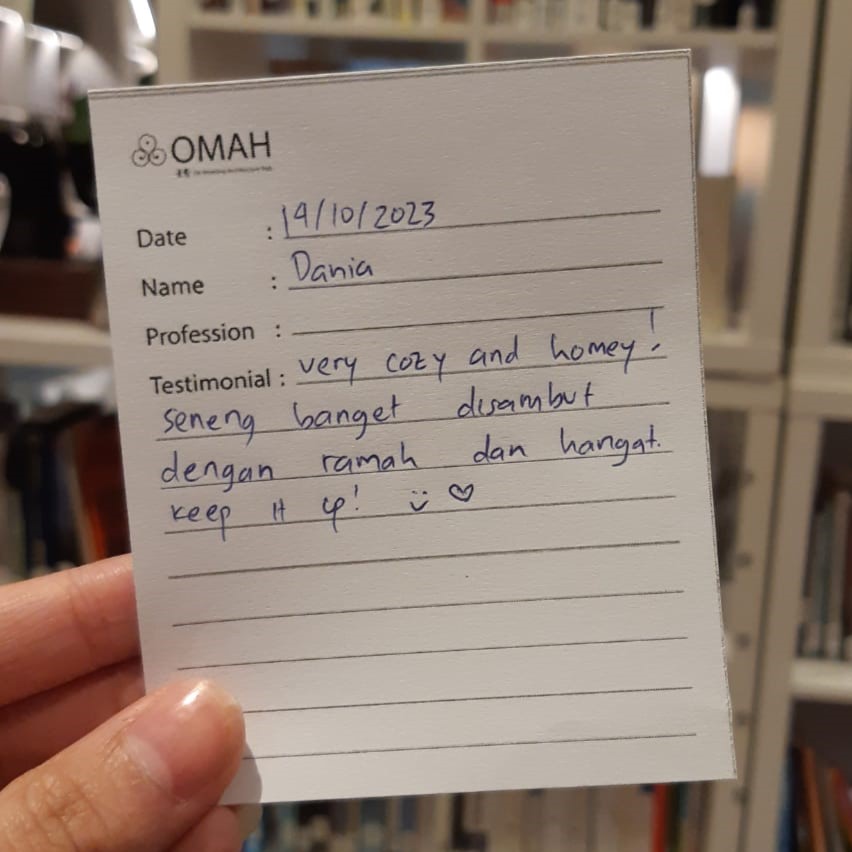 OMAH
Date : 14/10/2023
Name : Dania
Profession :
Testimonial : very cozy and homey!
seneng banget disambut
dengan ramah dan hangat.
keep it up! :) ♡